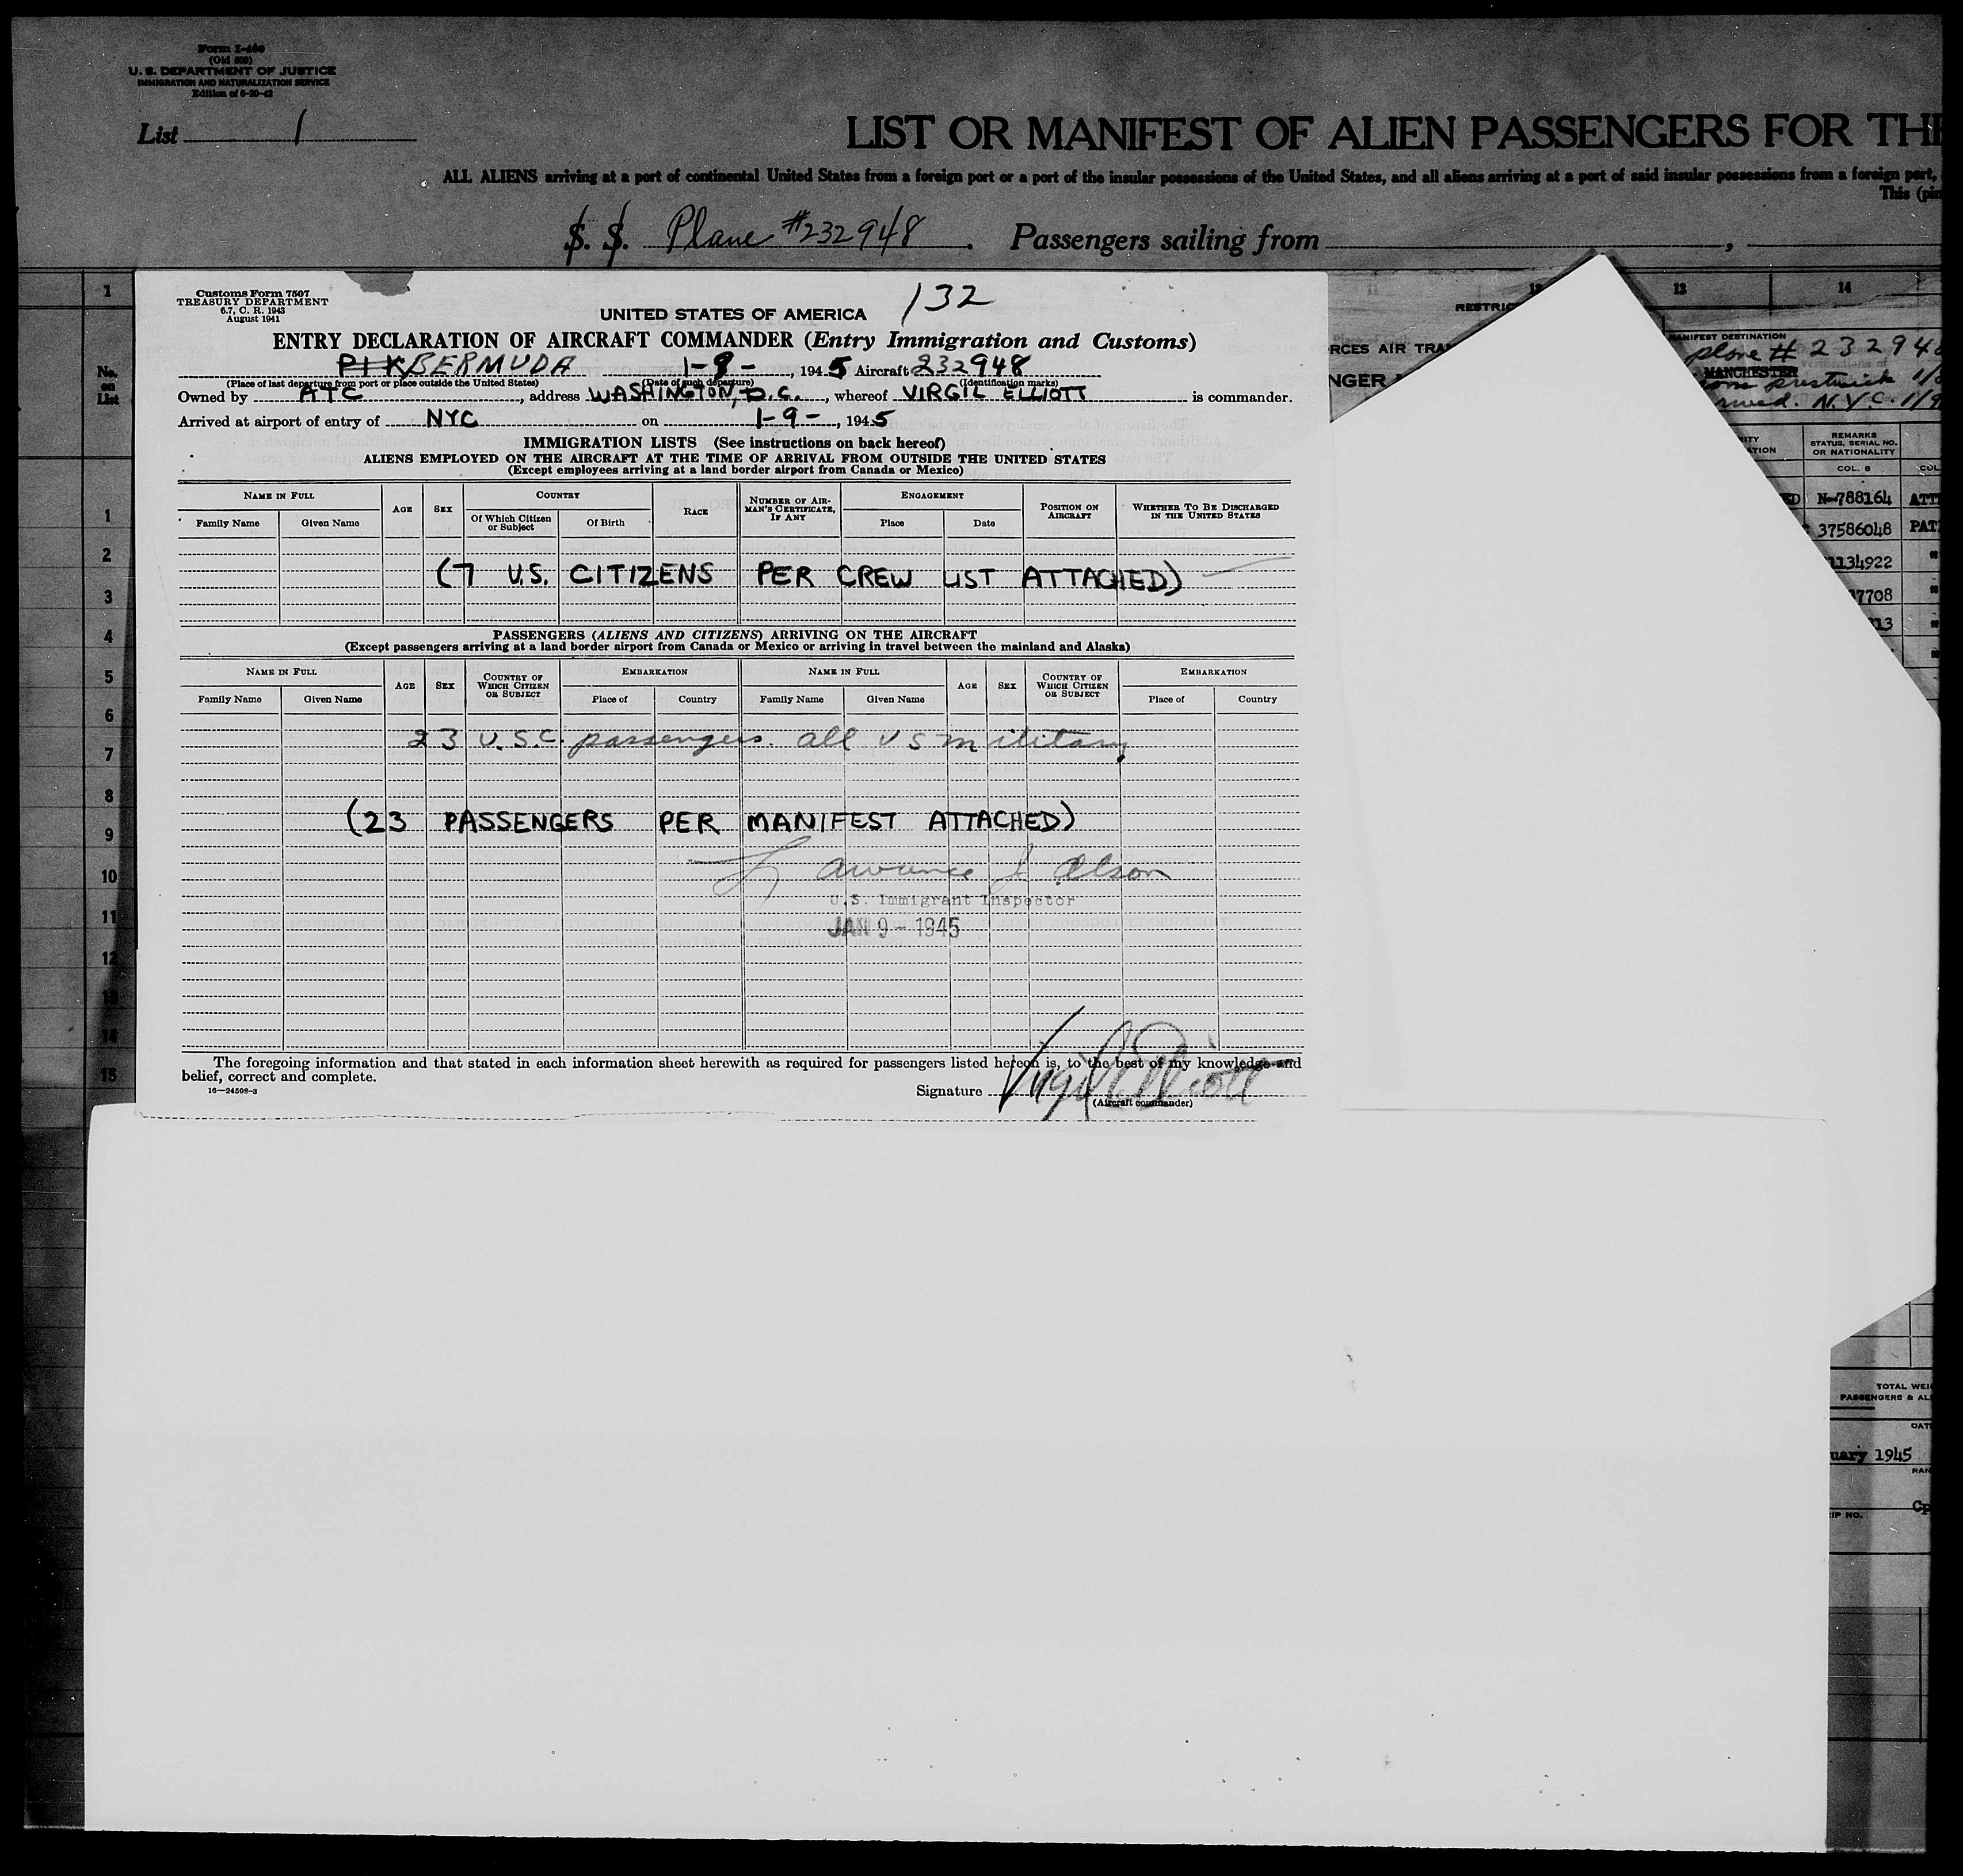 Form I-400
(Old 500)
U. S. DEPARTMENT OF JUSTICE
IMMIGRATION AND NATURALIZATION SERVICE
Edition of
List 1
LIST OR MANIFEST OF ALIEN PASSENGERS FOR THE
ALL ALIENS arriving at a port of continental United States from a foreign port or a port of the insular possessions of the United States, and all aliens arriving at a port of said insular possessions from a foreign port,
This
S. S. Plane #232948 . Passengers sailing from ,
1 13 14
Customs Form 7507
TREASURY DEPARTMENT
6.7, C. R. 1943
August 1941
132
UNITED STATES OF AMERICA
ENTRY DECLARATION OF AIRCRAFT COMMANDER (Entry Immigration and Customs)
PIK BERMUDA 1-9-, 1945 Aircraft 232948
(Place of last departure from port or place outside the United States) (Date of such departure) (Identification marks)
Owned by ATC, address WASHINGTON, D.C., whereof VIRGIL ELLIOTT is commander.
Arrived at airport of entry of NYC on 1-9-, 1945
IMMIGRATION LISTS (See instructions on back hereof)
ALIENS EMPLOYED ON THE AIRCRAFT AT THE TIME OF ARRIVAL FROM OUTSIDE THE UNITED STATES
(Except employees arriving at a land border airport from Canada or Mexico)
NAME IN FULL AGE SEX COUNTRY RACE NUMBER OF AIRMAN'S CERTIFICATE, IF ANY ENGAGEMENT POSITION ON AIRCRAFT WHETHER TO BE DISCHARGED IN THE UNITED STATES
Family Name Given Name Of Which Citizen or Subject Of Birth Place Date
(7 U.S. CITIZENS PER CREW LIST ATTACHED)
PASSENGERS (ALIENS AND CITIZENS) ARRIVING ON THE AIRCRAFT
(Except passengers arriving at a land border airport from Canada or Mexico or arriving in travel between the mainland and Alaska)
NAME IN FULL AGE SEX COUNTRY OF WHICH CITIZEN OR SUBJECT EMBARKATION NAME IN FULL AGE SEX COUNTRY OF WHICH CITIZEN OR SUBJECT EMBARKATION
Family Name Given Name Place of Country Family Name Given Name Place of Country
23 U.S.C. passengers. all US military
(23 PASSENGERS PER MANIFEST ATTACHED)
Lawrence J Olson
U.S. Immigrant Inspector
JAN 9 - 1945
The foregoing information and that stated in each information sheet herewith as required for passengers listed hereon is, to the best of my knowledge and
belief, correct and complete.
16—24598-3
Signature Virgil Elliott
(Aircraft commander)
No.
on
List
1
2
3
4
5
6
7
8
9
10
11
12
13
14
15
RESTRIC
RCES AIR TRA
NGER
MANIFEST DESTINATION
plane # 23294
MANCHESTER
prestwick
N.Y.C. 1/9
REMARKS
STATUS, SERIAL NO.
OR NATIONALITY
COL. 8 COL
N-788164 ATT
37586048 PAT
1134922 "
7708 "
13 "
TOTAL WEI
PASSENGERS & AL
DAT
uary 1945
RAN
Cp
IP NO.